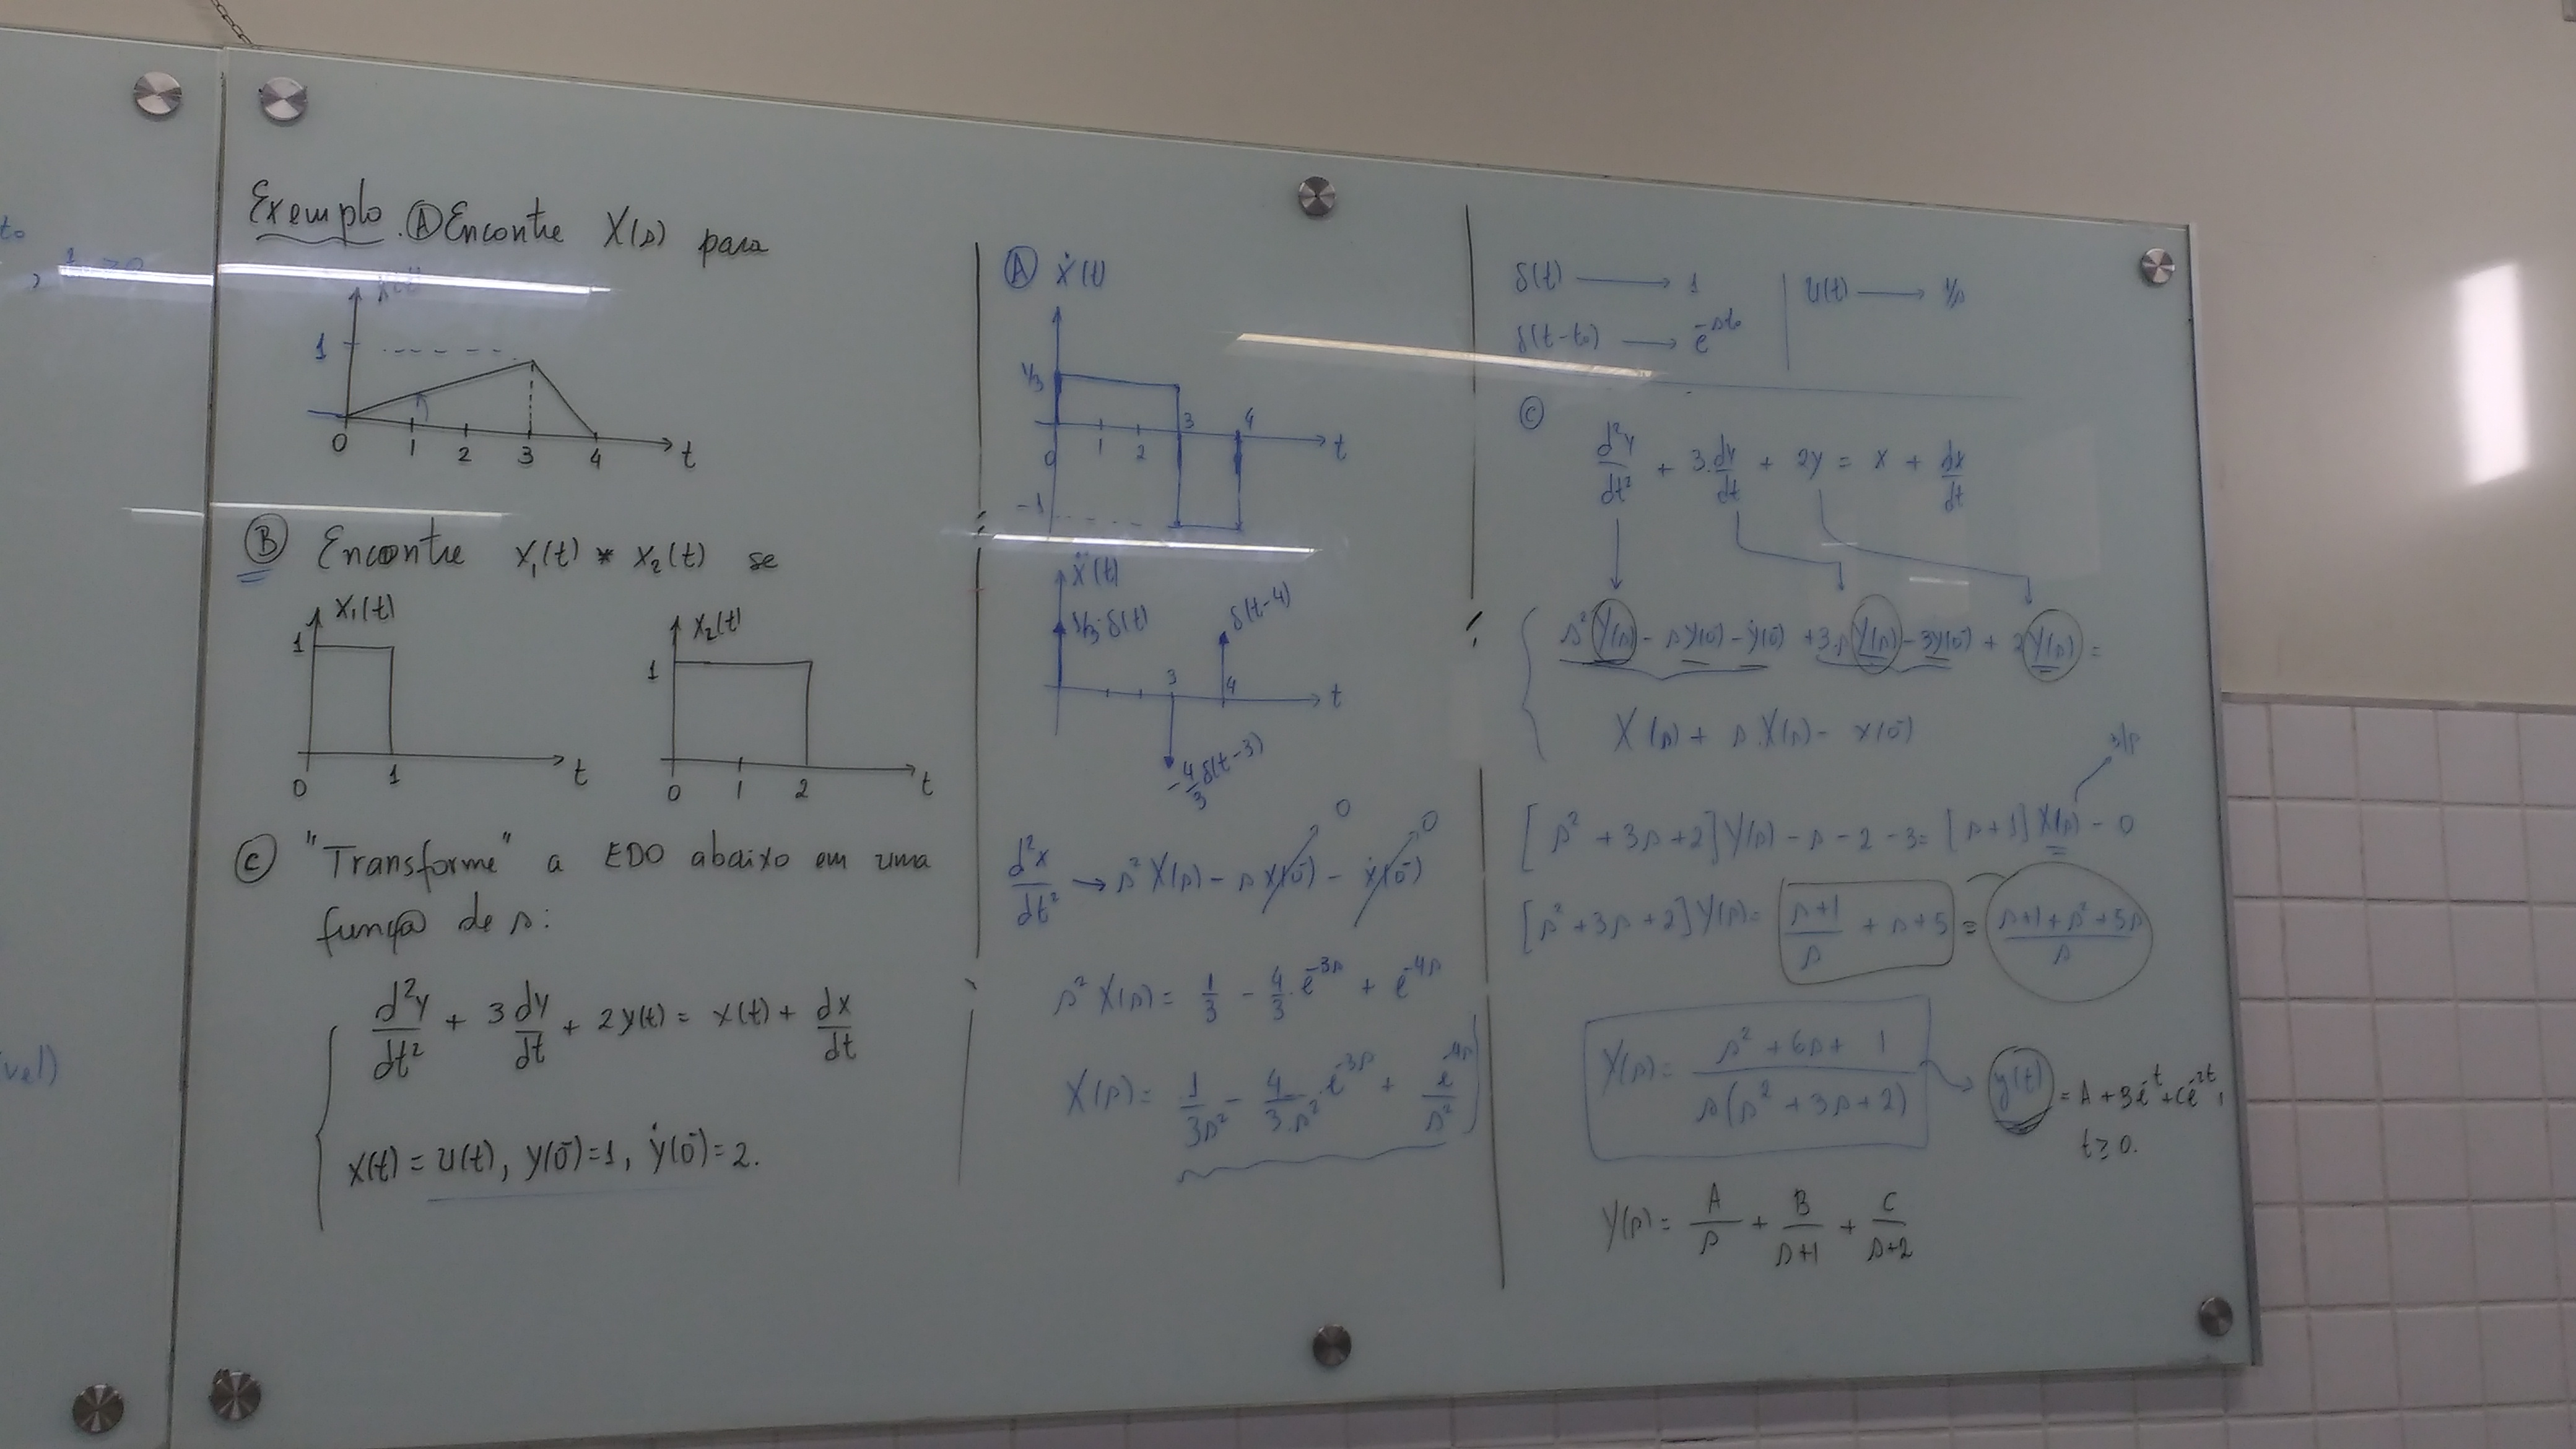 t₀
, t₀ > 0
vel)
Exemplo. Ⓐ Encontre X(s) para
x(t)
1
0 1 2 3 4 t
Ⓑ Encontre x₁(t) * x₂(t) se
x₁(t)
1
0 1 t
x₂(t)
1
0 1 2 t
Ⓒ "Transforme" a EDO abaixo em uma
função de s:
d²y/dt² + 3 dy/dt + 2y(t) = x(t) + dx/dt
x(t) = u(t), y(0⁻)=1, ẏ(0⁻)=2.
Ⓐ ẋ(t)
1/3
0 1 2 3 4 t
-1
ẍ(t)
1/3·δ(t)
δ(t-4)
3 4 t
-4/3 δ(t-3)
d²x/dt² → s² X(s) - s x(0⁻) - ẋ(0⁻)
0 0
s² X(s) = 1/3 - 4/3 · e^-3s + e^-4s
X(s) = 1/3s² - 4/3.s² · e^-3s + e^-4s/s²
δ(t) → 1 | u(t) → 1/s
δ(t-t₀) → e^-st₀
Ⓒ
d²y/dt² + 3.dy/dt + 2y = x + dx/dt
s² Y(s) - s y(0⁻) - ẏ(0⁻) + 3.s Y(s) - 3y(0⁻) + 2Y(s) =
X(s) + s.X(s) - x(0⁻)
[s² + 3s + 2] Y(s) - s - 2 - 3 = [s+1] X(s) - 0
[s² + 3s + 2] Y(s) = s+1/s + s+5 = s+1+s²+5s/s
Y(s) = s² + 6s + 1/s(s² + 3s + 2) → y(t) = A + Be^-t + Ce^-2t,
t ≥ 0.
Y(s) = A/s + B/s+1 + C/s+2